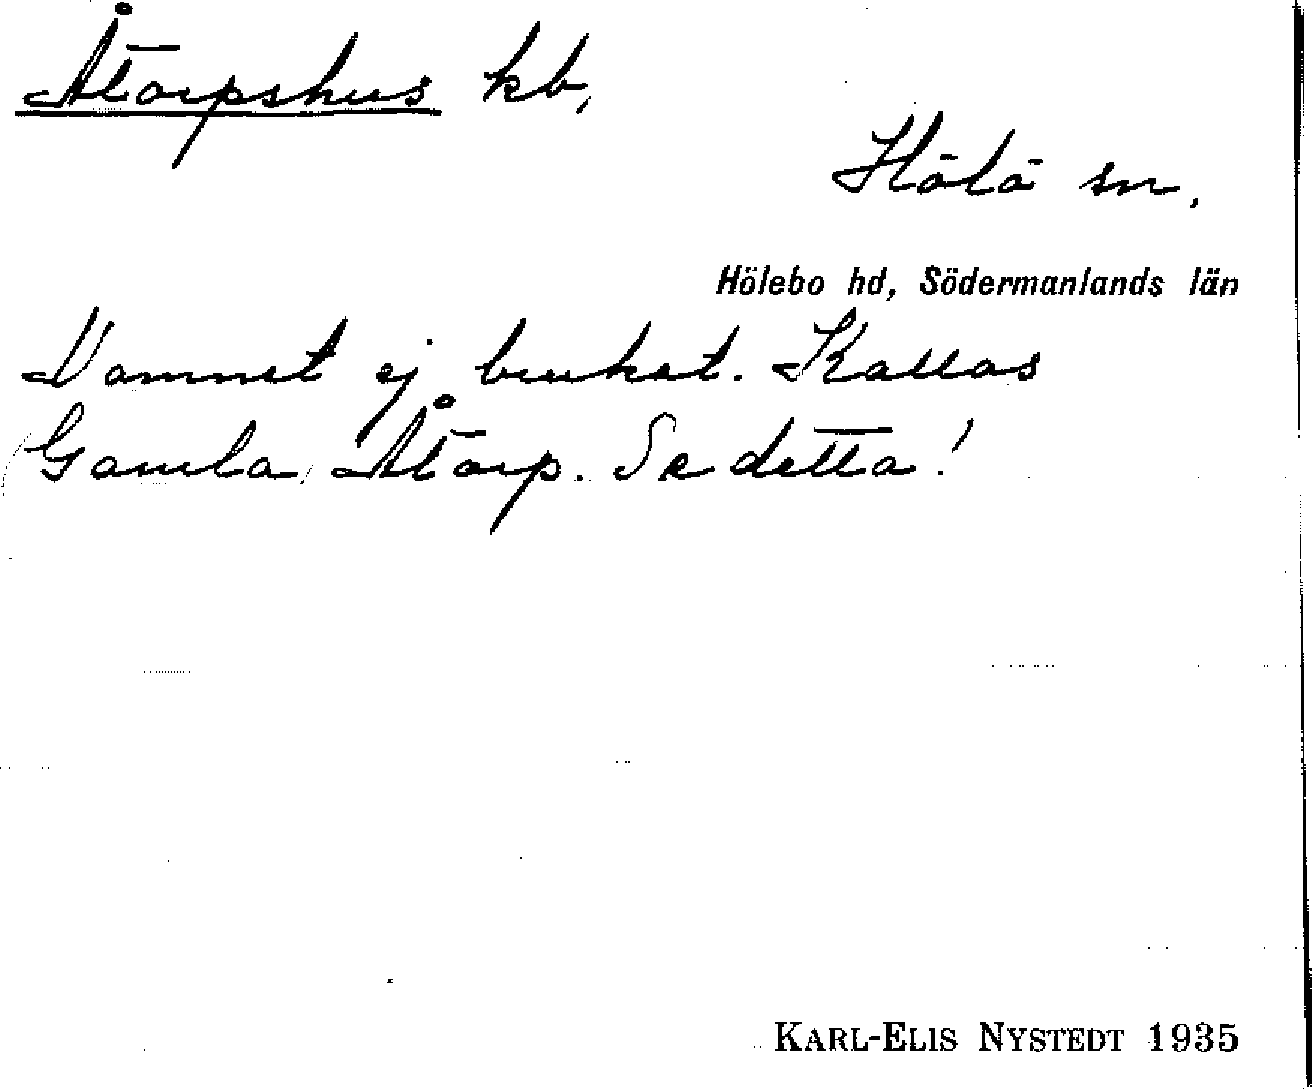 Åtorpshus kb,
Hölö sn.
Hölebo hd, Södermanlands län
Namnet ej brukat. Kallas
Gamla Åtorp. Se detta!
KARL-ELIS NYSTEDT 1935